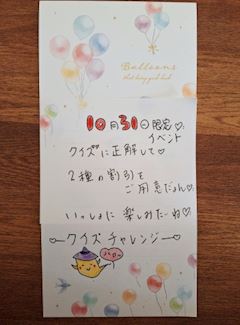 Balloons
10月31日限定♡
イベント
クイズに正解して♡
2種の割引を
ご用意だよん♡
いっしょに楽しみたーね♡
クイズチャレンジ